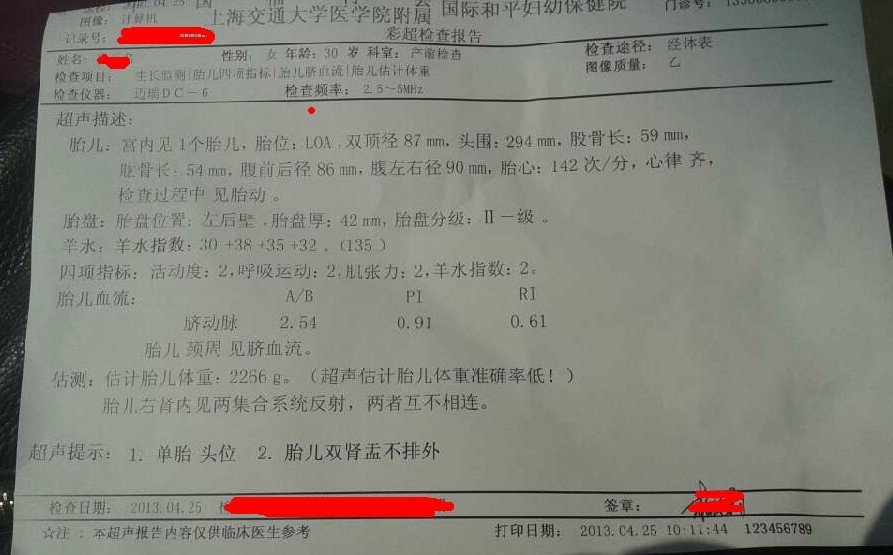 04.25
上海交通大学医学院附属 国际和平妇幼保健院
图像: 计算机
彩超检查报告
记录号:
姓名: 性别: 女 年龄: 30 岁 科室: 产前检查
检查途径: 经体表
检查项目: 生长监测|胎儿四项指标|胎儿脐血流|胎儿估计体重
图像质量: 乙
检查仪器: 迈瑞DC-6 检查频率: 2.5~5MHz
超声描述:
胎儿: 宫内见 1个胎儿, 胎位: LOA , 双顶径 87 mm, 头围: 294 mm, 股骨长: 59 mm,
肱骨长: 54 mm, 腹前后径 86 mm, 腹左右径 90 mm, 胎心: 142 次/分, 心律 齐,
检查过程中 见胎动 。
胎盘: 胎盘位置: 左后壁 , 胎盘厚: 42 mm, 胎盘分级: Ⅱ-级 。
羊水: 羊水指数: 30 +38 +35 +32 。(135 )
四项指标: 活动度: 2, 呼吸运动: 2, 肌张力: 2, 羊水指数: 2。
胎儿血流: A/B PI RI
脐动脉 2.54 0.91 0.61
胎儿 颈周 见脐血流。
估测: 估计胎儿体重: 2256 g。 (超声估计胎儿体重准确率低!)
胎儿右肾内见两集合系统反射, 两者互不相连。
超声提示: 1. 单胎 头位 2. 胎儿双肾盂不排外
检查日期: 2013.04.25 签章:
☆注 : 本超声报告内容仅供临床医生参考 打印日期: 2013.04.25 10:11:44 123456789